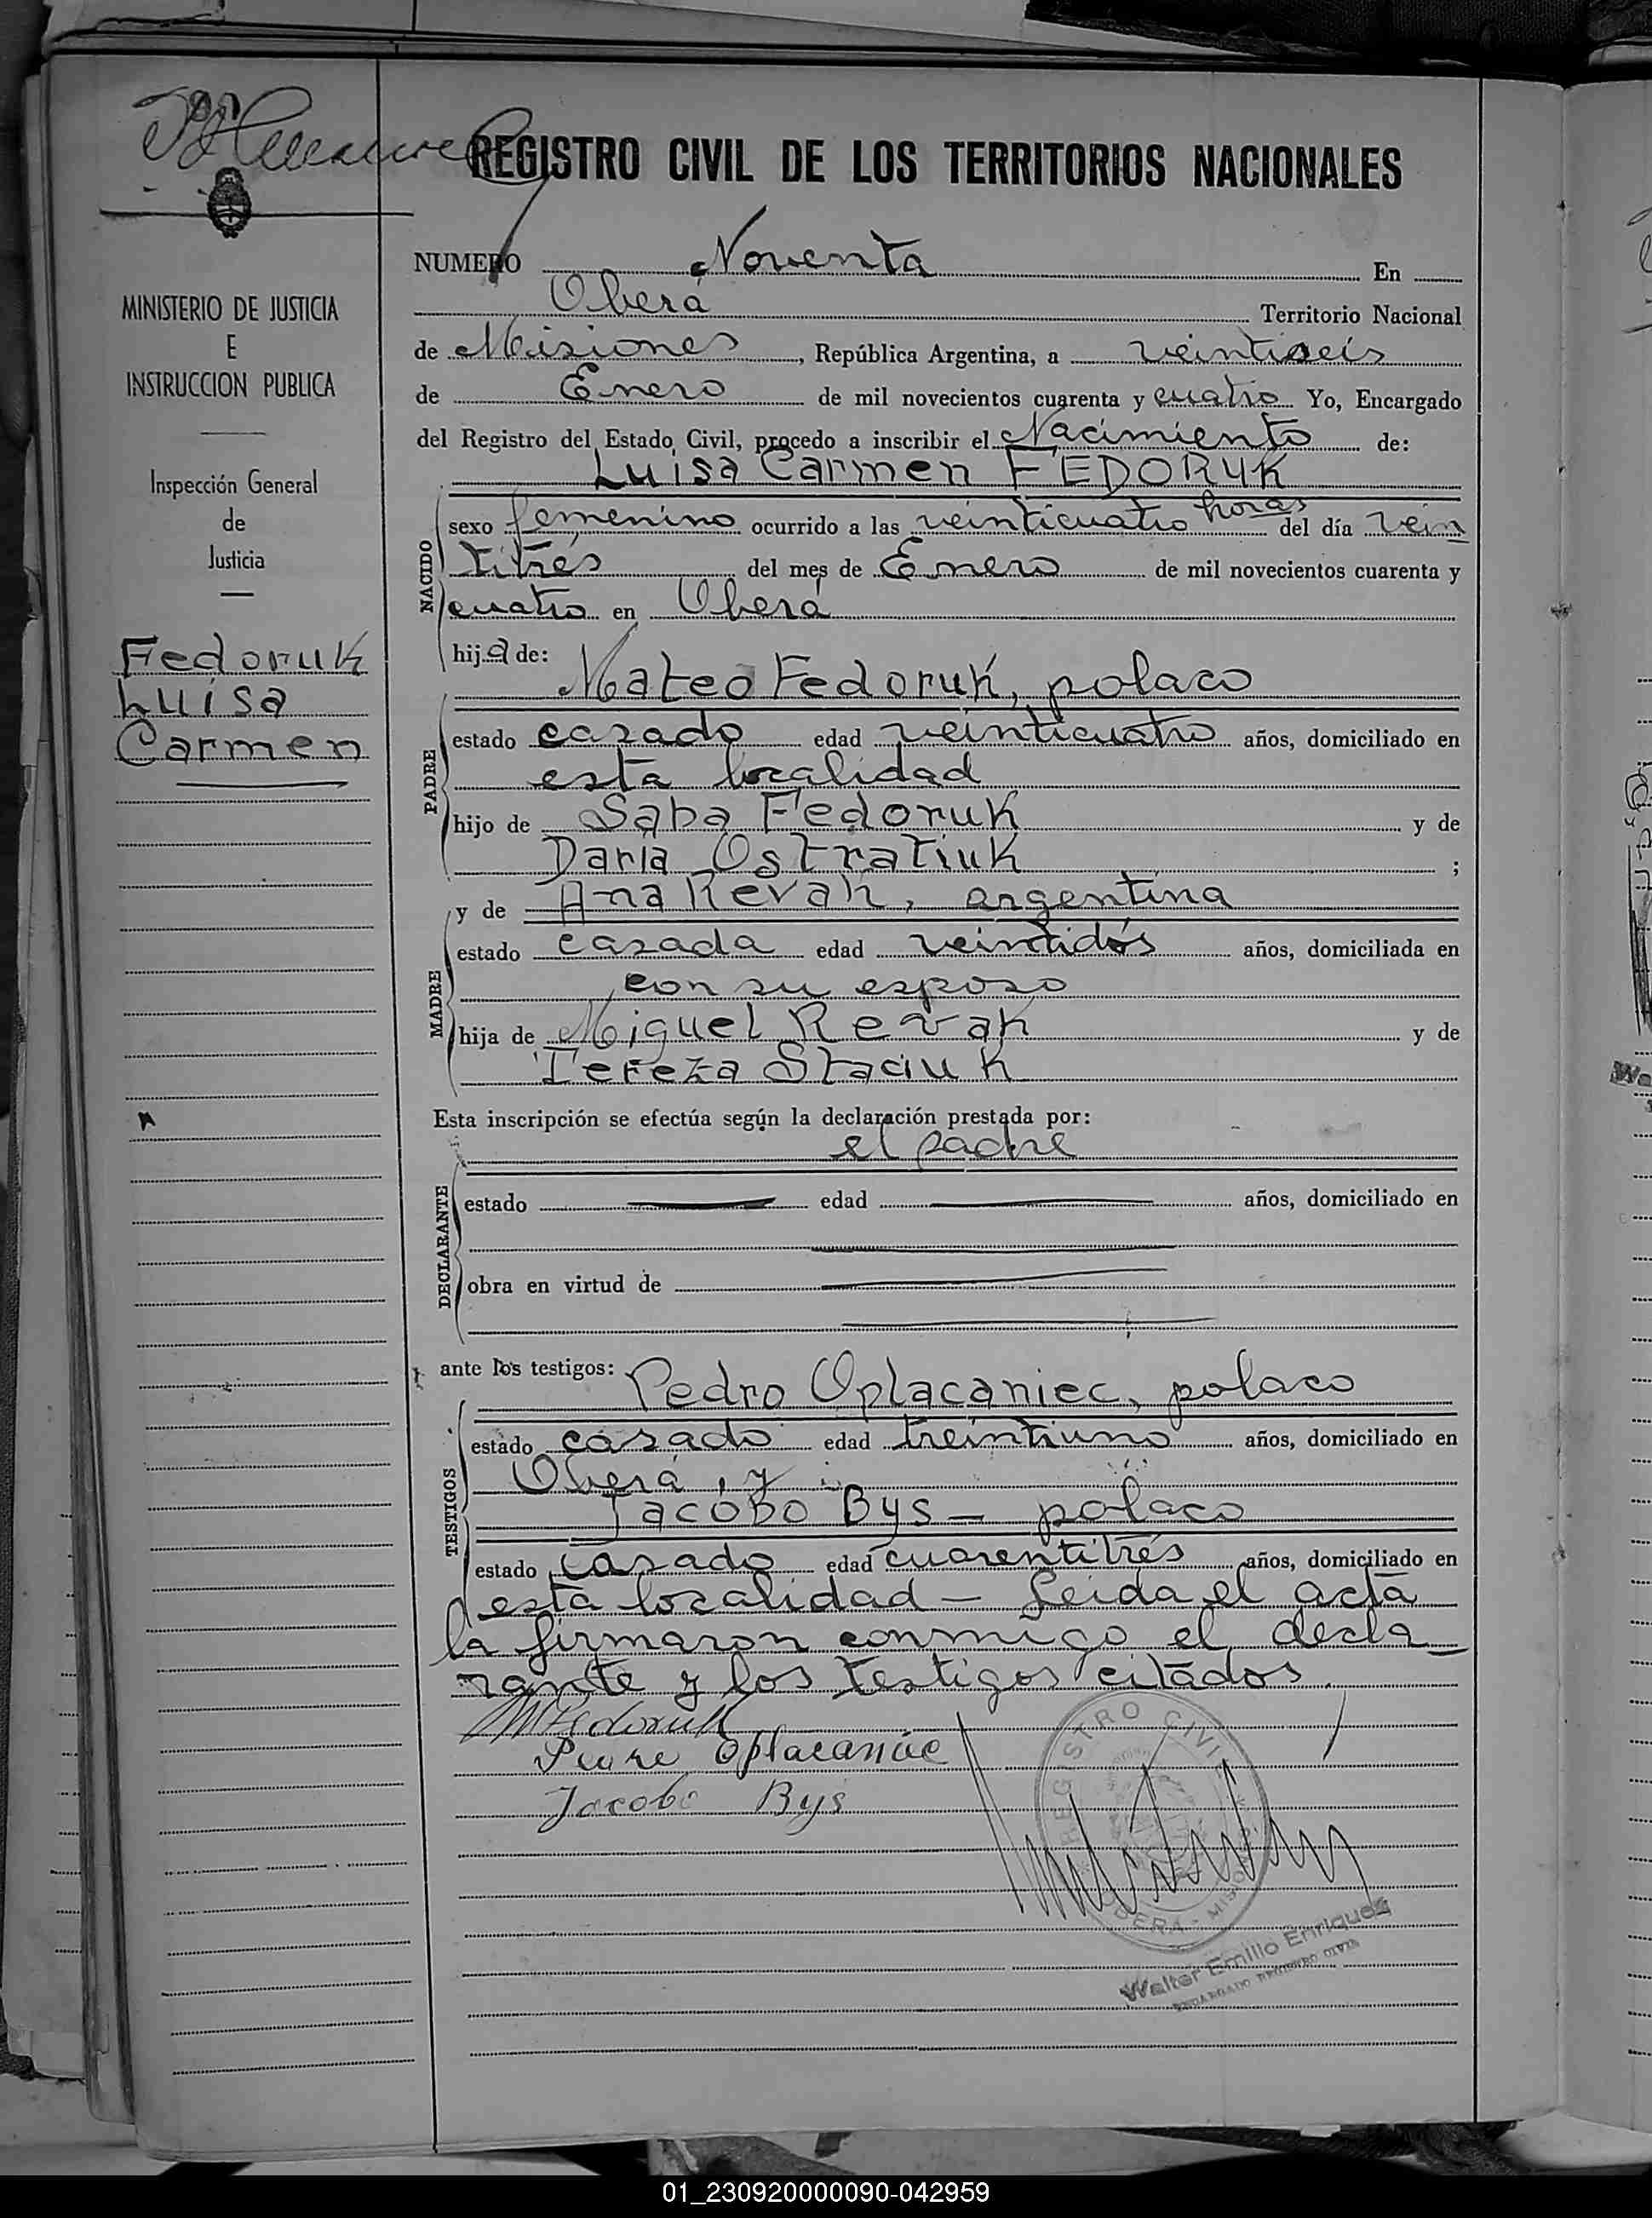 REGISTRO CIVIL DE LOS TERRITORIOS NACIONALES
MINISTERIO DE JUSTICIA
E
INSTRUCCION PUBLICA
Inspección General
de
Justicia
Fedoruk
Luisa
Carmen
NUMERO Noventa En
Oberá Territorio Nacional
de Misiones, República Argentina, a veintiseis
de Enero de mil novecientos cuarenta y cuatro Yo, Encargado
del Registro del Estado Civil, procedo a inscribir el Nacimiento de:
Luisa Carmen FEDORUK
NACIDO
sexo femenino ocurrido a las veinticuatro horas del día vein
titrés del mes de Enero de mil novecientos cuarenta y
cuatro en Oberá
hija de:
Mateo Fedoruk, polaco
PADRE
estado casado edad veinticuatro años, domiciliado en
esta localidad
hijo de Saba Fedoruk y de
Daria Ostratiuk ;
y de Ana Revak, argentina
MADRE
estado casada edad veintidós años, domiciliada en
con su esposo
hija de Miguel Revak y de
Tereza Staciuk
Esta inscripción se efectúa según la declaración prestada por:
el padre
DECLARANTE
estado edad años, domiciliado en
obra en virtud de
ante los testigos:
Pedro Oplacaniec, polaco
TESTIGOS
estado casado edad treintiuno años, domiciliado en
Oberá, y
Jacobo Bys – polaco
estado casado edad cuarentitrés años, domiciliado en
esta localidad – Leida el acta
la firmaron conmigo el decla
rante y los testigos citados.
M Fedoruk
Oplacaniec
Jacobo Bys
REGISTRO CIVIL
OBERA - MISIONES
Walter Emilio Enriquez
ENCARGADO REGISTRO CIVIL
01_230920000090-042959